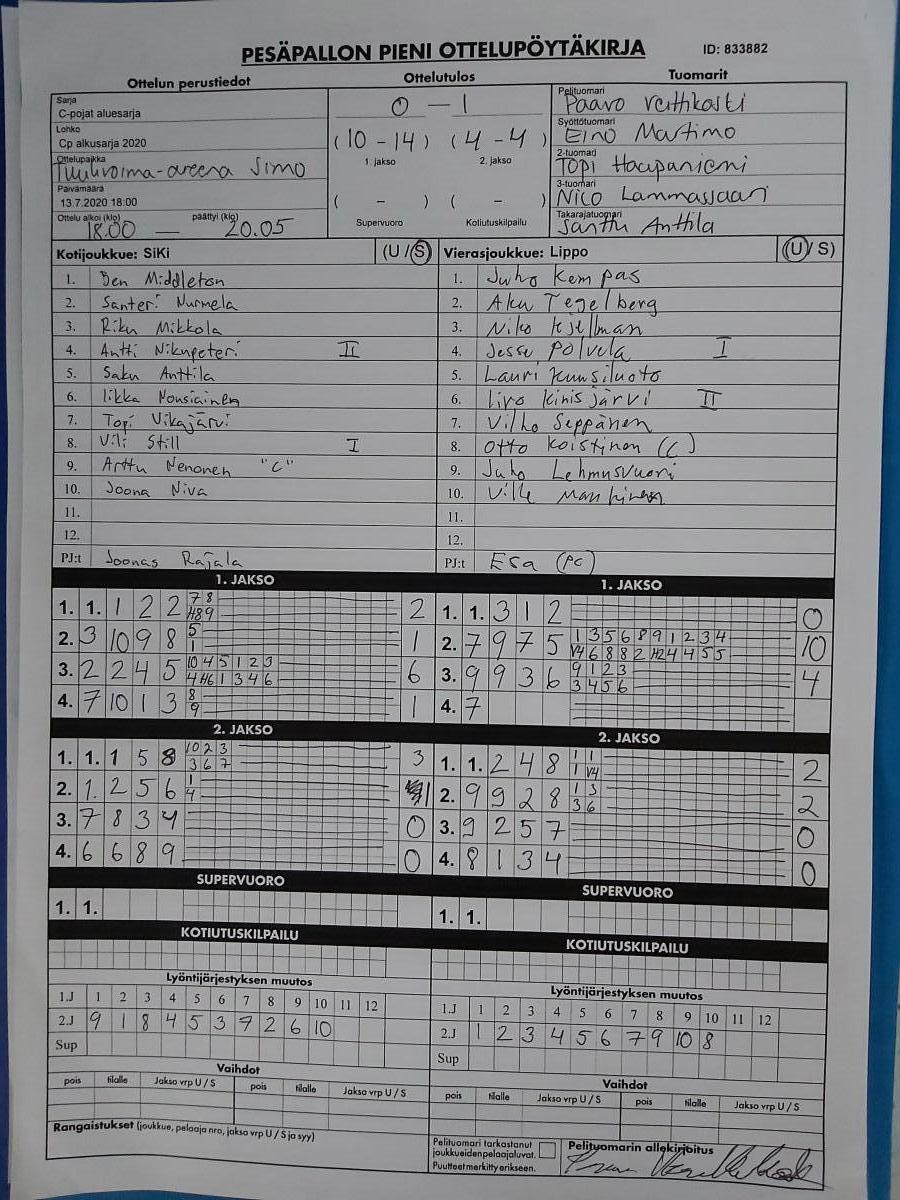 PESÄPALLON PIENI OTTELUPÖYTÄKIRJA ID: 833882
Ottelun perustiedot Ottelutulos Tuomarit
Sarja
C-pojat aluesarja
Lohko
Cp alkusarja 2020
Ottelupaikka
Tuulivoima-areena Simo
Päivämäärä
13.7.2020 18:00
Ottelu alkoi (klo) päättyi (klo)
18.00 — 20.05
0 — 1
(10 - 14) (4 - 4)
1. jakso 2. jakso
( - ) ( - )
Supervuoro Kotiutuskilpailu
Pelituomari
Paavo
Syöttötuomari
Eino Martimo
2-tuomari
Topi Haapaniemi
3-tuomari
Nico Lammassaari
Takarajatuomari
Santtu Anttila
Kotijoukkue: SiKi (U / S)
1. Ben Middleton
2. Santeri Nurmela
3. Riku Mikkola
4. Antti Nikupeteri II
5. Saku Anttila
6. Iikka Nousiainen
7. Topi Vikajärvi
8. Vili Still I
9. Arttu Nenonen "C"
10. Joona Niva
11.
12.
PJ:t Joonas Rajala
Vierasjoukkue: Lippo (U / S)
1. Juho Kempas
2. Aku Tegelberg
3. Niko Kjellman
4. Jesse Polvela I
5. Lauri Kuusiluoto
6. Iivo Kinisjärvi II
7. Vilho Seppänen
8. Otto Koistinen (C)
9. Juho Lehmusvuori
10. Ville
11.
12.
PJ:t Esa (PC)
1. JAKSO
1. 1. 1 2 2 7 8 2
H8 9
2. 3 10 9 8 5 1
1
3. 2 2 4 5 10 4 5 1 2 3 6
4 H6 1 3 4 6
4. 7 10 1 3 8 1
9
1. JAKSO
1. 1. 3 1 2 0
2. 7 9 7 5 1 3 5 6 8 9 1 2 3 4 10
V4 6 8 8 2 H2 4 4 5 5
3. 9 9 3 6 9 1 2 3 4
3 4 5 6
4. 7
2. JAKSO
1. 1. 1 5 8 10 2 3 3
3 6 7
2. 1. 2 5 6 1 1
4
3. 7 8 3 4 0
4. 6 6 8 9 0
2. JAKSO
1. 1. 2 4 8 1 1 2
1 V4
2. 9 9 2 8 1 3 2
3 6
3. 9 2 5 7 0
4. 8 1 3 4 0
SUPERVUORO SUPERVUORO
1. 1. 1. 1.
KOTIUTUSKILPAILU KOTIUTUSKILPAILU
Lyöntijärjestyksen muutos
1.J 1 2 3 4 5 6 7 8 9 10 11 12
2.J 9 1 8 4 5 3 7 2 6 10
Sup
Lyöntijärjestyksen muutos
1.J 1 2 3 4 5 6 7 8 9 10 11 12
2.J 1 2 3 4 5 6 7 9 10 8
Sup
Vaihdot Vaihdot
pois tilalle Jakso vrp U / S pois tilalle Jakso vrp U / S
pois tilalle Jakso vrp U / S pois tilalle Jakso vrp U / S
Rangaistukset (joukkue, pelaaja nro, jakso vrp U / S ja syy)
Pelituomari tarkastanut
joukkueiden pelaajaluvat.
Puutteet merkitty erikseen.
Pelituomarin allekirjoitus